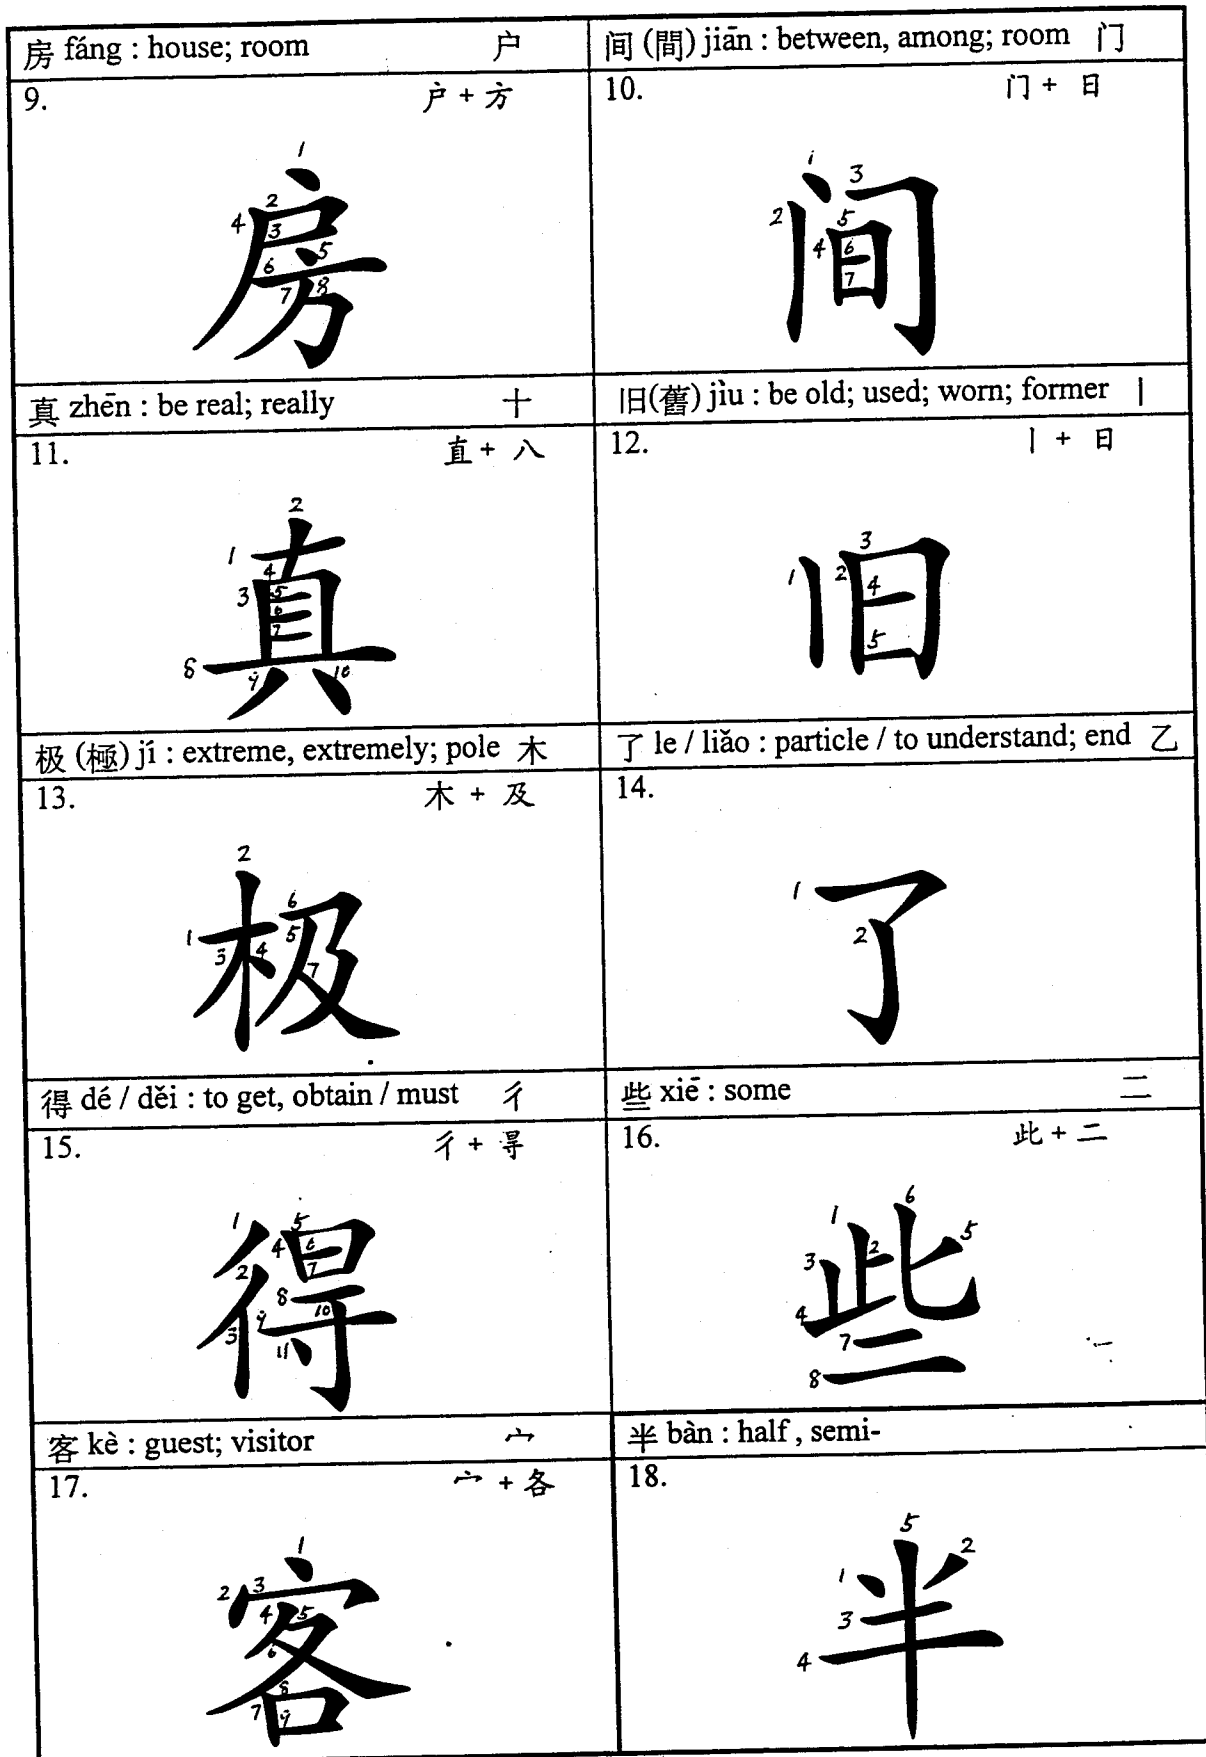 房 fáng : house; room 户
9. 户 + 方
1 2 3 4 5 6 7 8
房
间 (間) jiān : between, among; room 门
10. 门 + 日
1 2 3 4 5 6 7
间
真 zhēn : be real; really 十
11. 直 + 八
1 2 3 4 5 6 7 8 9 10
真
旧(舊) jìu : be old; used; worn; former 丨
12. 丨 + 日
1 2 3 4 5
旧
极 (極) jí : extreme, extremely; pole 木
13. 木 + 及
1 2 3 4 5 6 7
极
了 le / liǎo : particle / to understand; end 乙
14.
1 2
了
得 dé / děi : to get, obtain / must 彳
15. 彳 + 㝵
1 2 3 4 5 6 7 8 9 10 11
得
些 xiē : some 二
16. 此 + 二
1 2 3 4 5 6 7 8
些
客 kè : guest; visitor 宀
17. 宀 + 各
1 2 3 4 5 6 7 8 9
客
半 bàn : half , semi-
18.
1 2 3 4 5
半